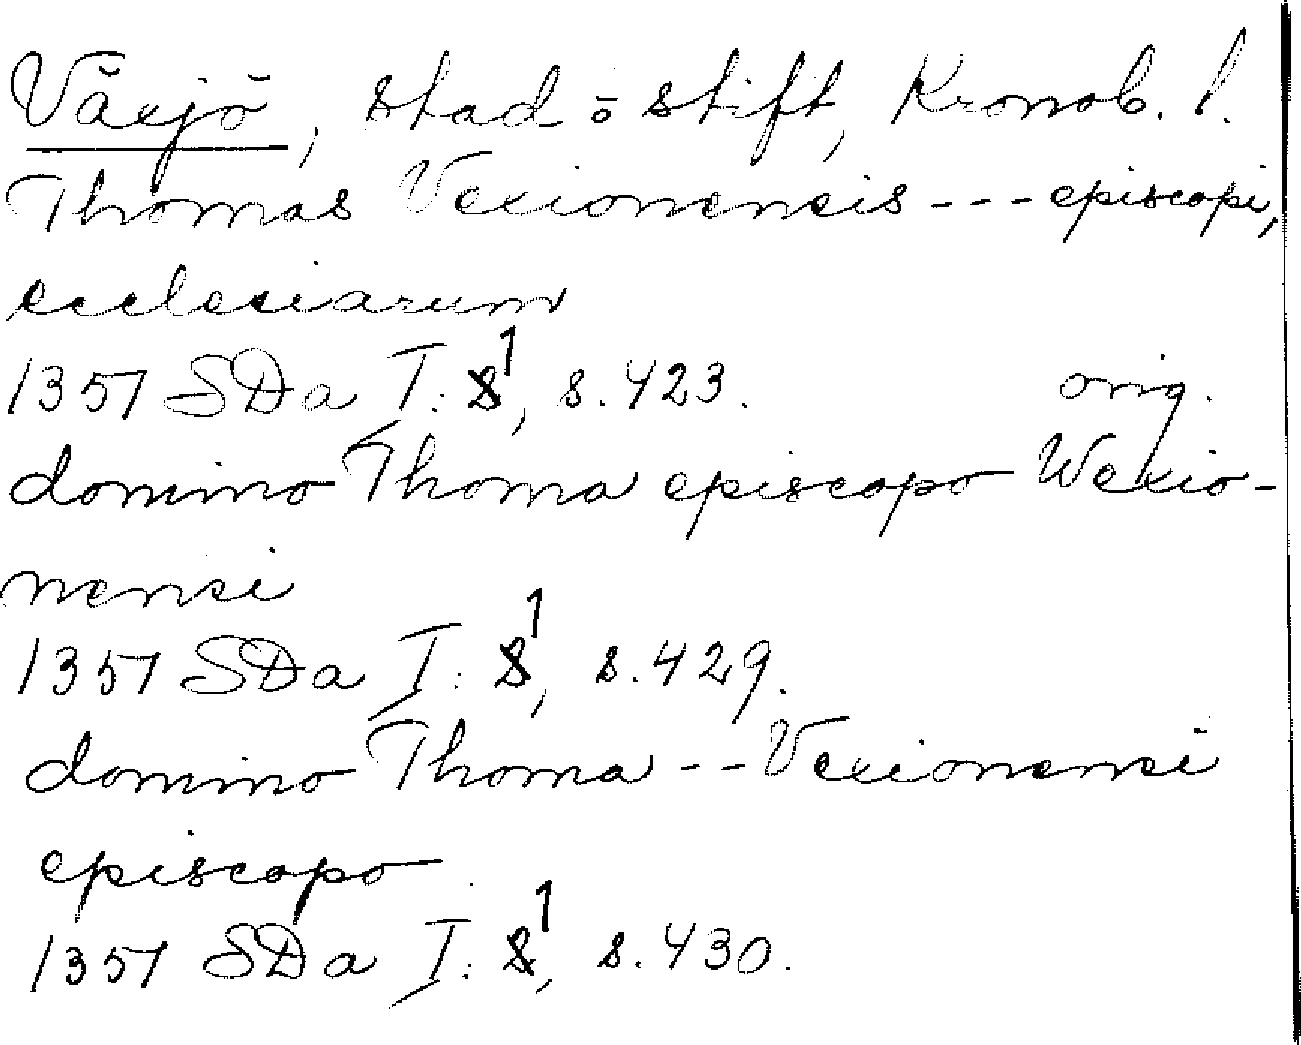 Växjö, stad o stift, Kronob. l.
Thomas Vexionensis --- episcopi,
ecclesiarum
1357 SDa I: 1, s. 423. orig.
domino Thoma episcopo Wexio-
nensi
1357 SDa I: 1, s. 429.
domino Thoma -- Vexionensi
episcopo
1357 SDa I: 1, s. 430.